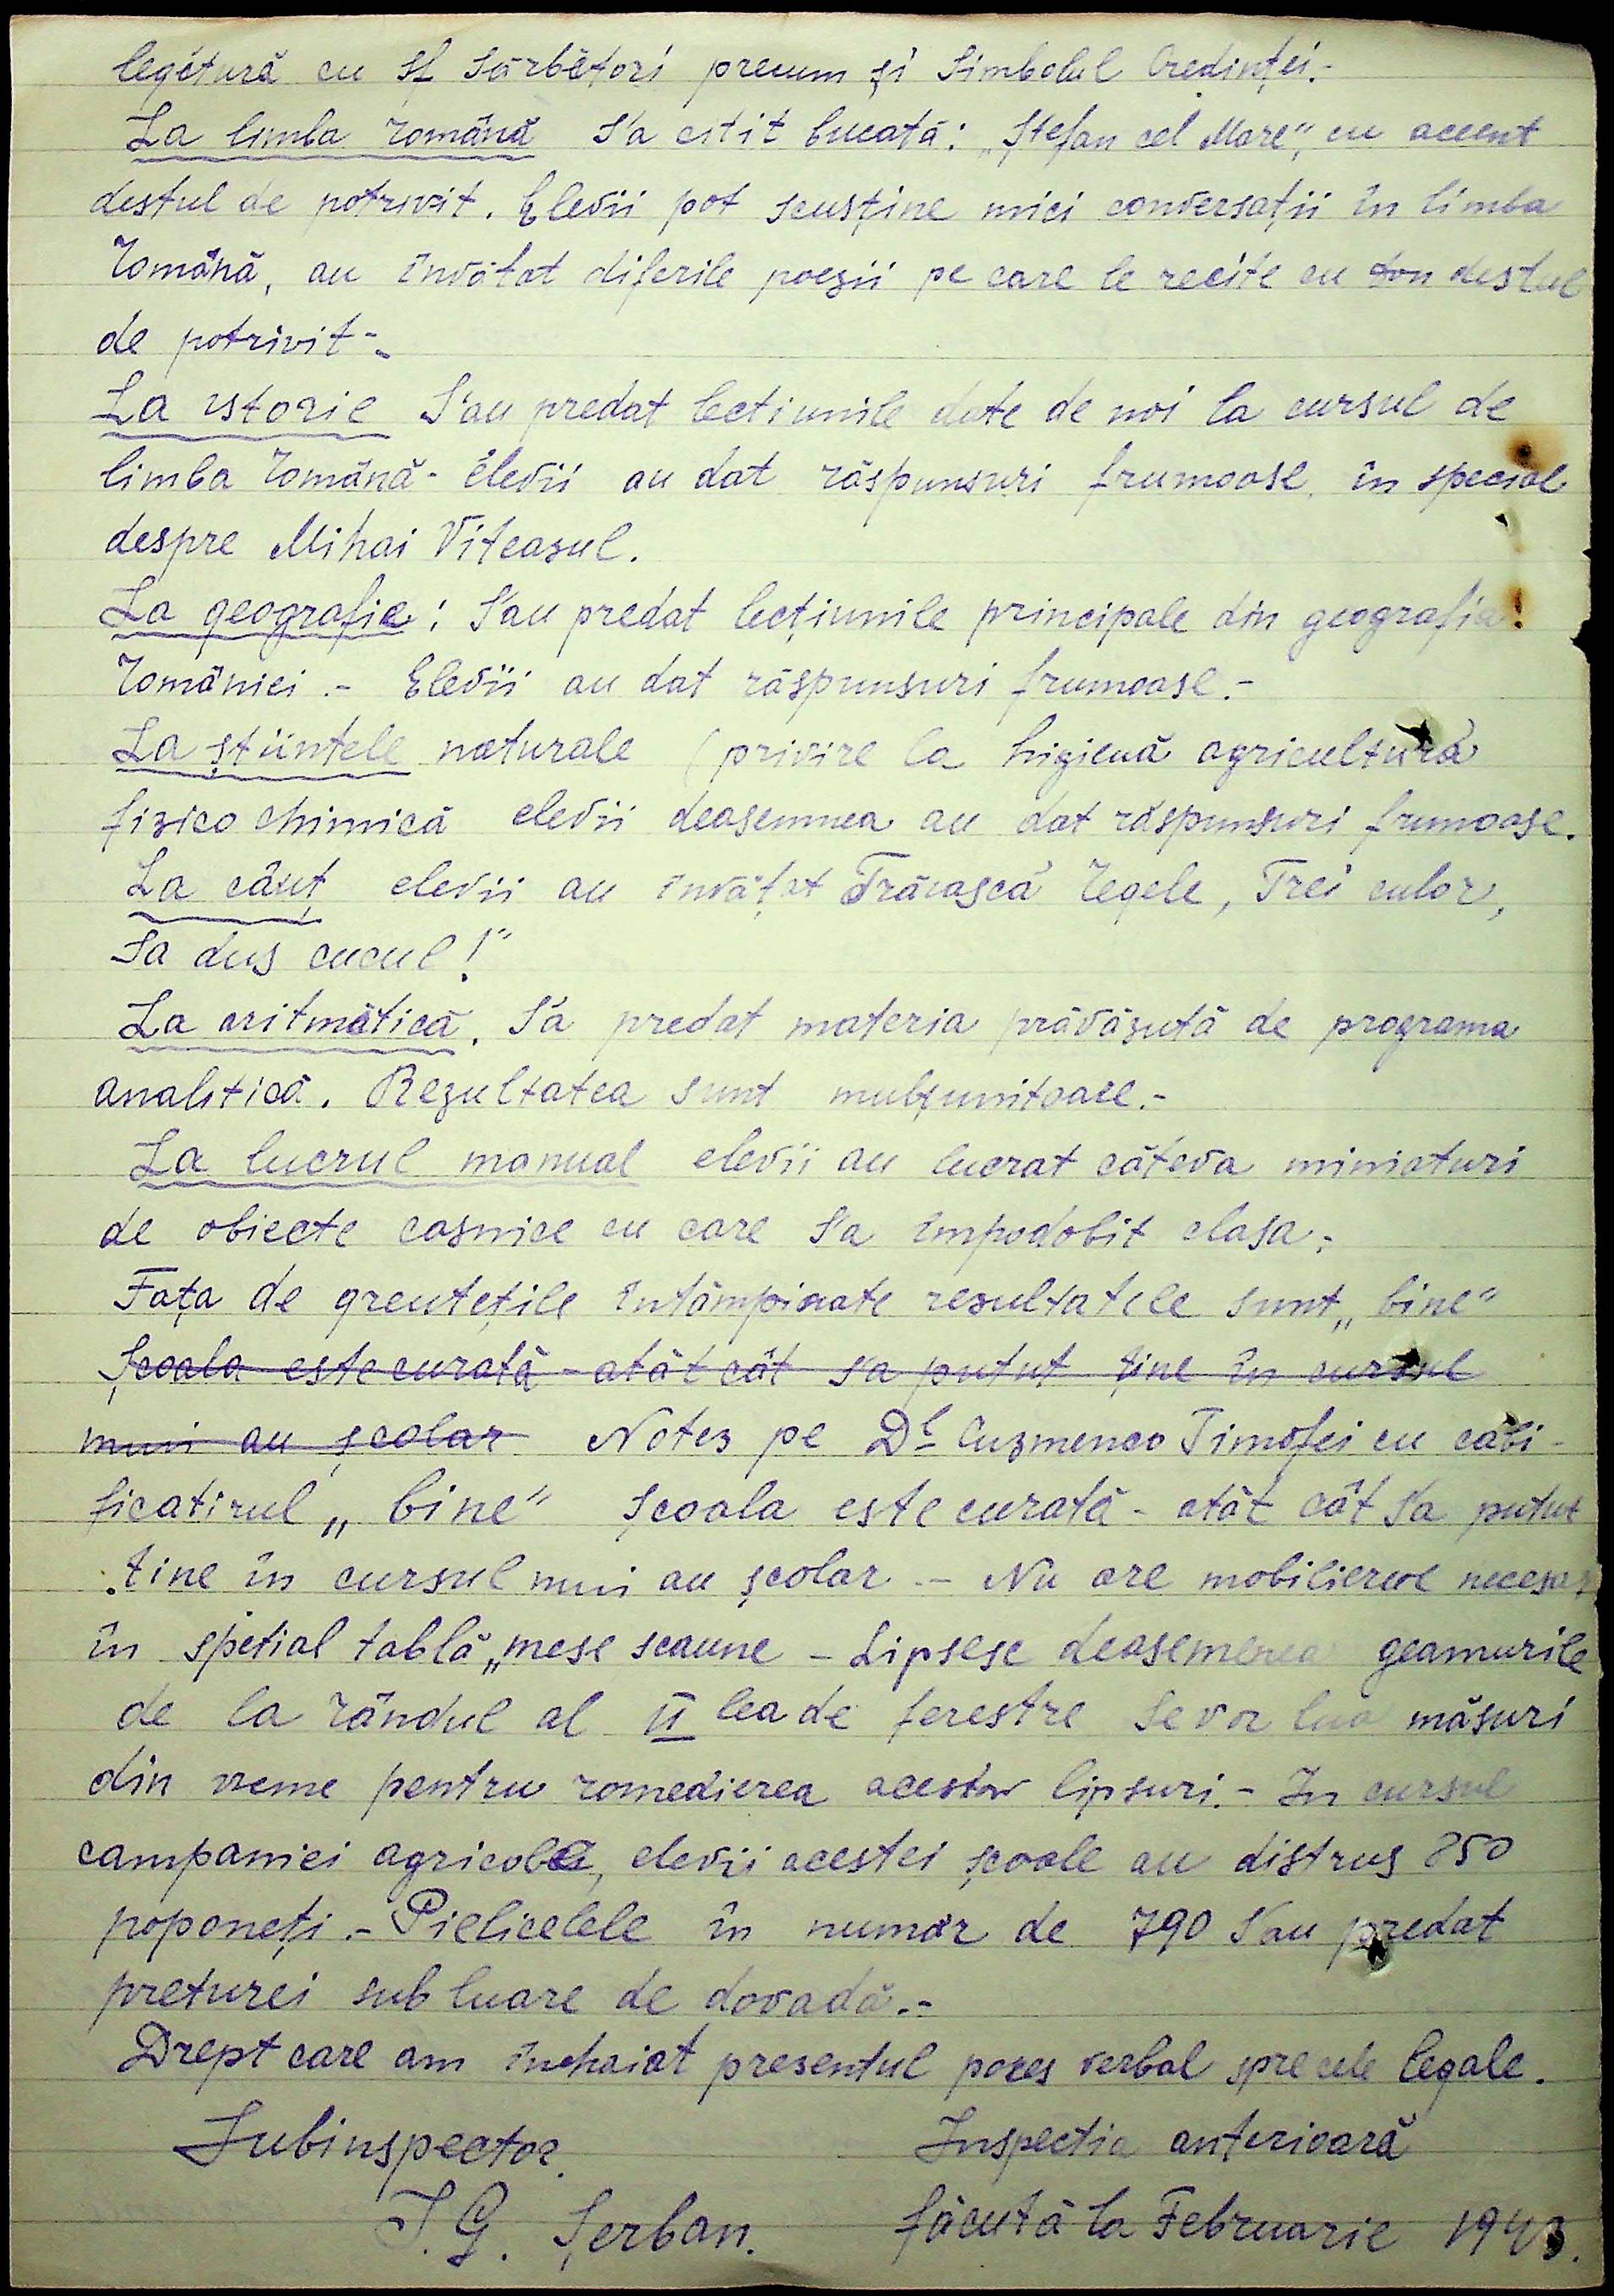 legétură cu Sf Sărbători precum și Simbolul Credinței.-
La limba română S'a citit bucată: „Ștefan cel Mare", cu accent
destul de potrivit. Elevii pot scusține mici conversații în limba
română, au învătat diferile poezii pe care le recite cu ton destul
de potrivit-.
La istorie S'au predat lectiunile date de noi la cursul de
limba română- elevii au dat răspunsuri frumoase, în special
despre Mihai Viteasul.
La geografie: S'au predat lecțiunile principale din geografia
României.- Elevii au dat răspunsuri frumoase.-
La știintele naturale (privire la higienă agricultură
fizico chimică elevii deasemnea au dat răspunsuri frumoase.
La cânt elevii au învățat Trăiască Regele, Trei culor,
Sa dus cucul!"
La aritmătică. S'a predat materia prăvăzută de programa
analitică. Rezultatea sunt mulțumitoare.-
La lucrul manual elevii au lucrat câteva miniaturi
de obiecte casnice cu care S'a împodobit clasa.
Fața de greutețile întâmpinate resultatele sunt „bine"
Școala este curată - atât cât s'a putut ține în cursul
unui an școlar Notez pe Dl Cuzmenco Timofei cu cali-
ficatirul „bine" școala este curată - atât cât S'a putut
tine în cursul unui an școlar - Nu are mobilierul necesar
în spetial tablă „mese scaune - Lipsesc deasemenea geamurile
de la rândul al II lea de ferestre se vor lua măsuri
din vreme pentru romedierea acestor lipsuri.- In cursul
campaniei agricole, elevii acestei școale au distrus 850
poponeți.- Pielicelele în număr de 790 s'au predat
preturei sub luare de dovadă.-
Drept care am închaiat presentul poces verbal spre cele legale.
Subinspector. Inspectia anterioară
I. G. Șerban. făcută la Februarie 1943.